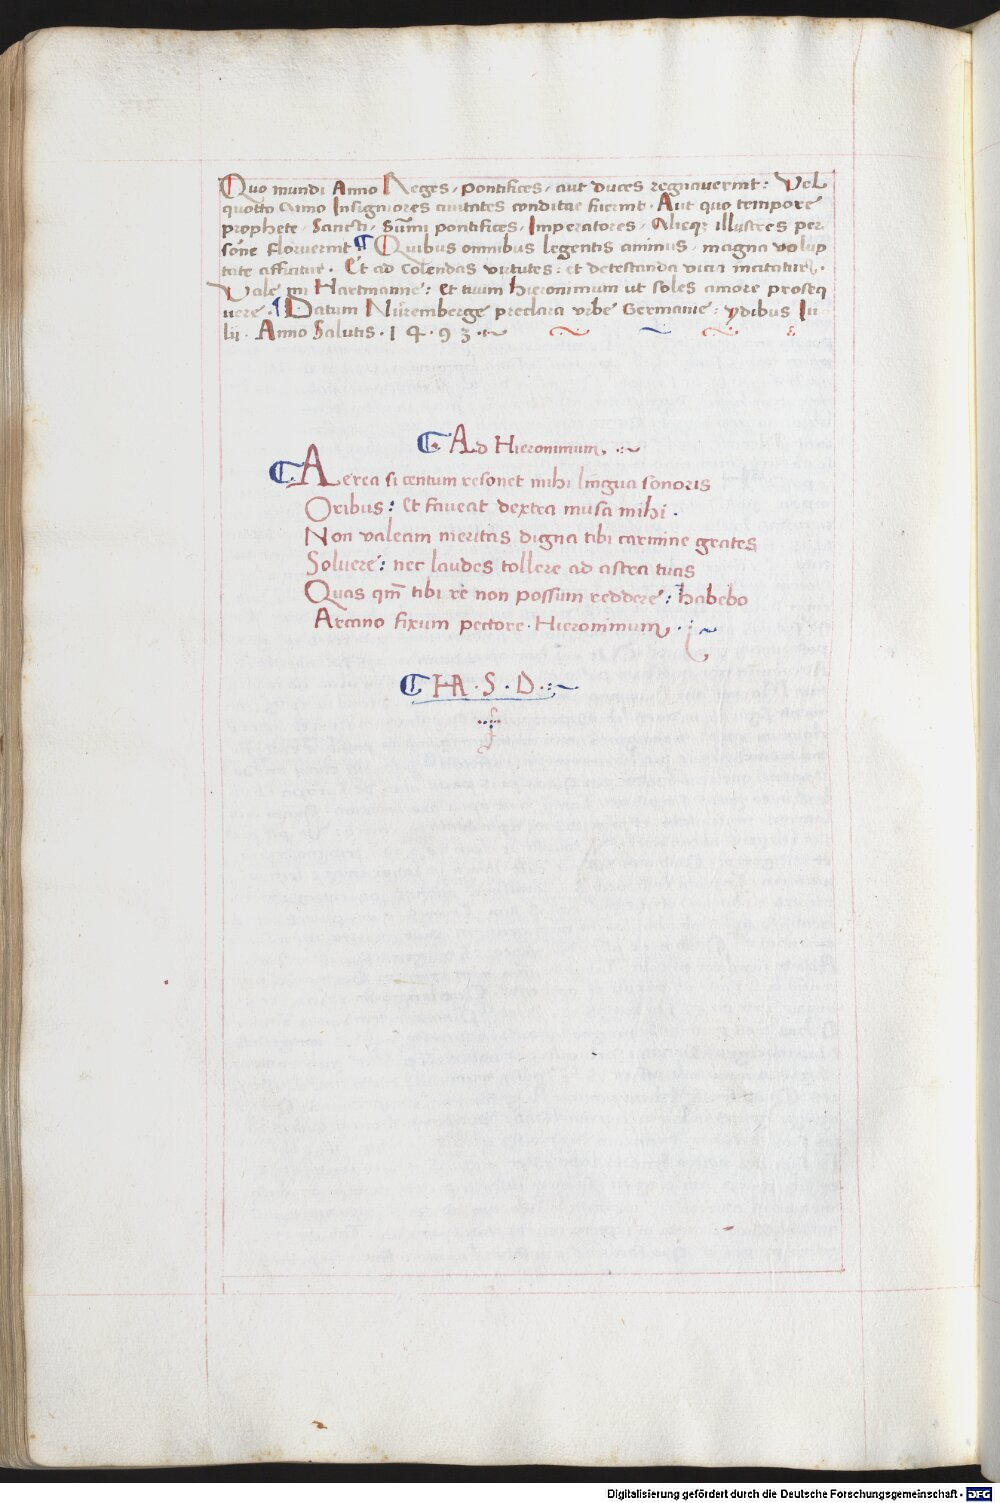 Quo mundi Anno Reges, pontifices, aut duces regnauerint: Vel
quotto Anno Insigniores ciuitates conditae fuerint. Aut quo tempore
prophete. Sancti. Sūmi pontifices. Imperatores. Alieq; illustres per
sōne floruerint ¶ Quibus omnibus legentis animus. magna volup
tate afficitur. Et ad colendas virtutes: et detestanda vicia incitatur.
Vale mi Hartmanne: Et tuum hieronimum ut soles amore proseq
uere. ¶ Datum Nuremberge preclara vrbe Germanie: ydibus Iu
lij. Anno Salutis. 1 4 9 3.
¶ Ad Hieronimum.
¶ Aerea si centum resonet mihi lingua sonoris
Oribus: Et faueat dextra musa mihi.
Non valeam meritas digna tibi carmine grates
Soluere: nec laudes tollere ad astra tuas
Quas qm̄ tibi re non possum reddere: habebo
Arcano fixum pectore. Hieronimum.
¶ HA. S. D.
Digitalisierung gefördert durch die Deutsche Forschungsgemeinschaft - DFG